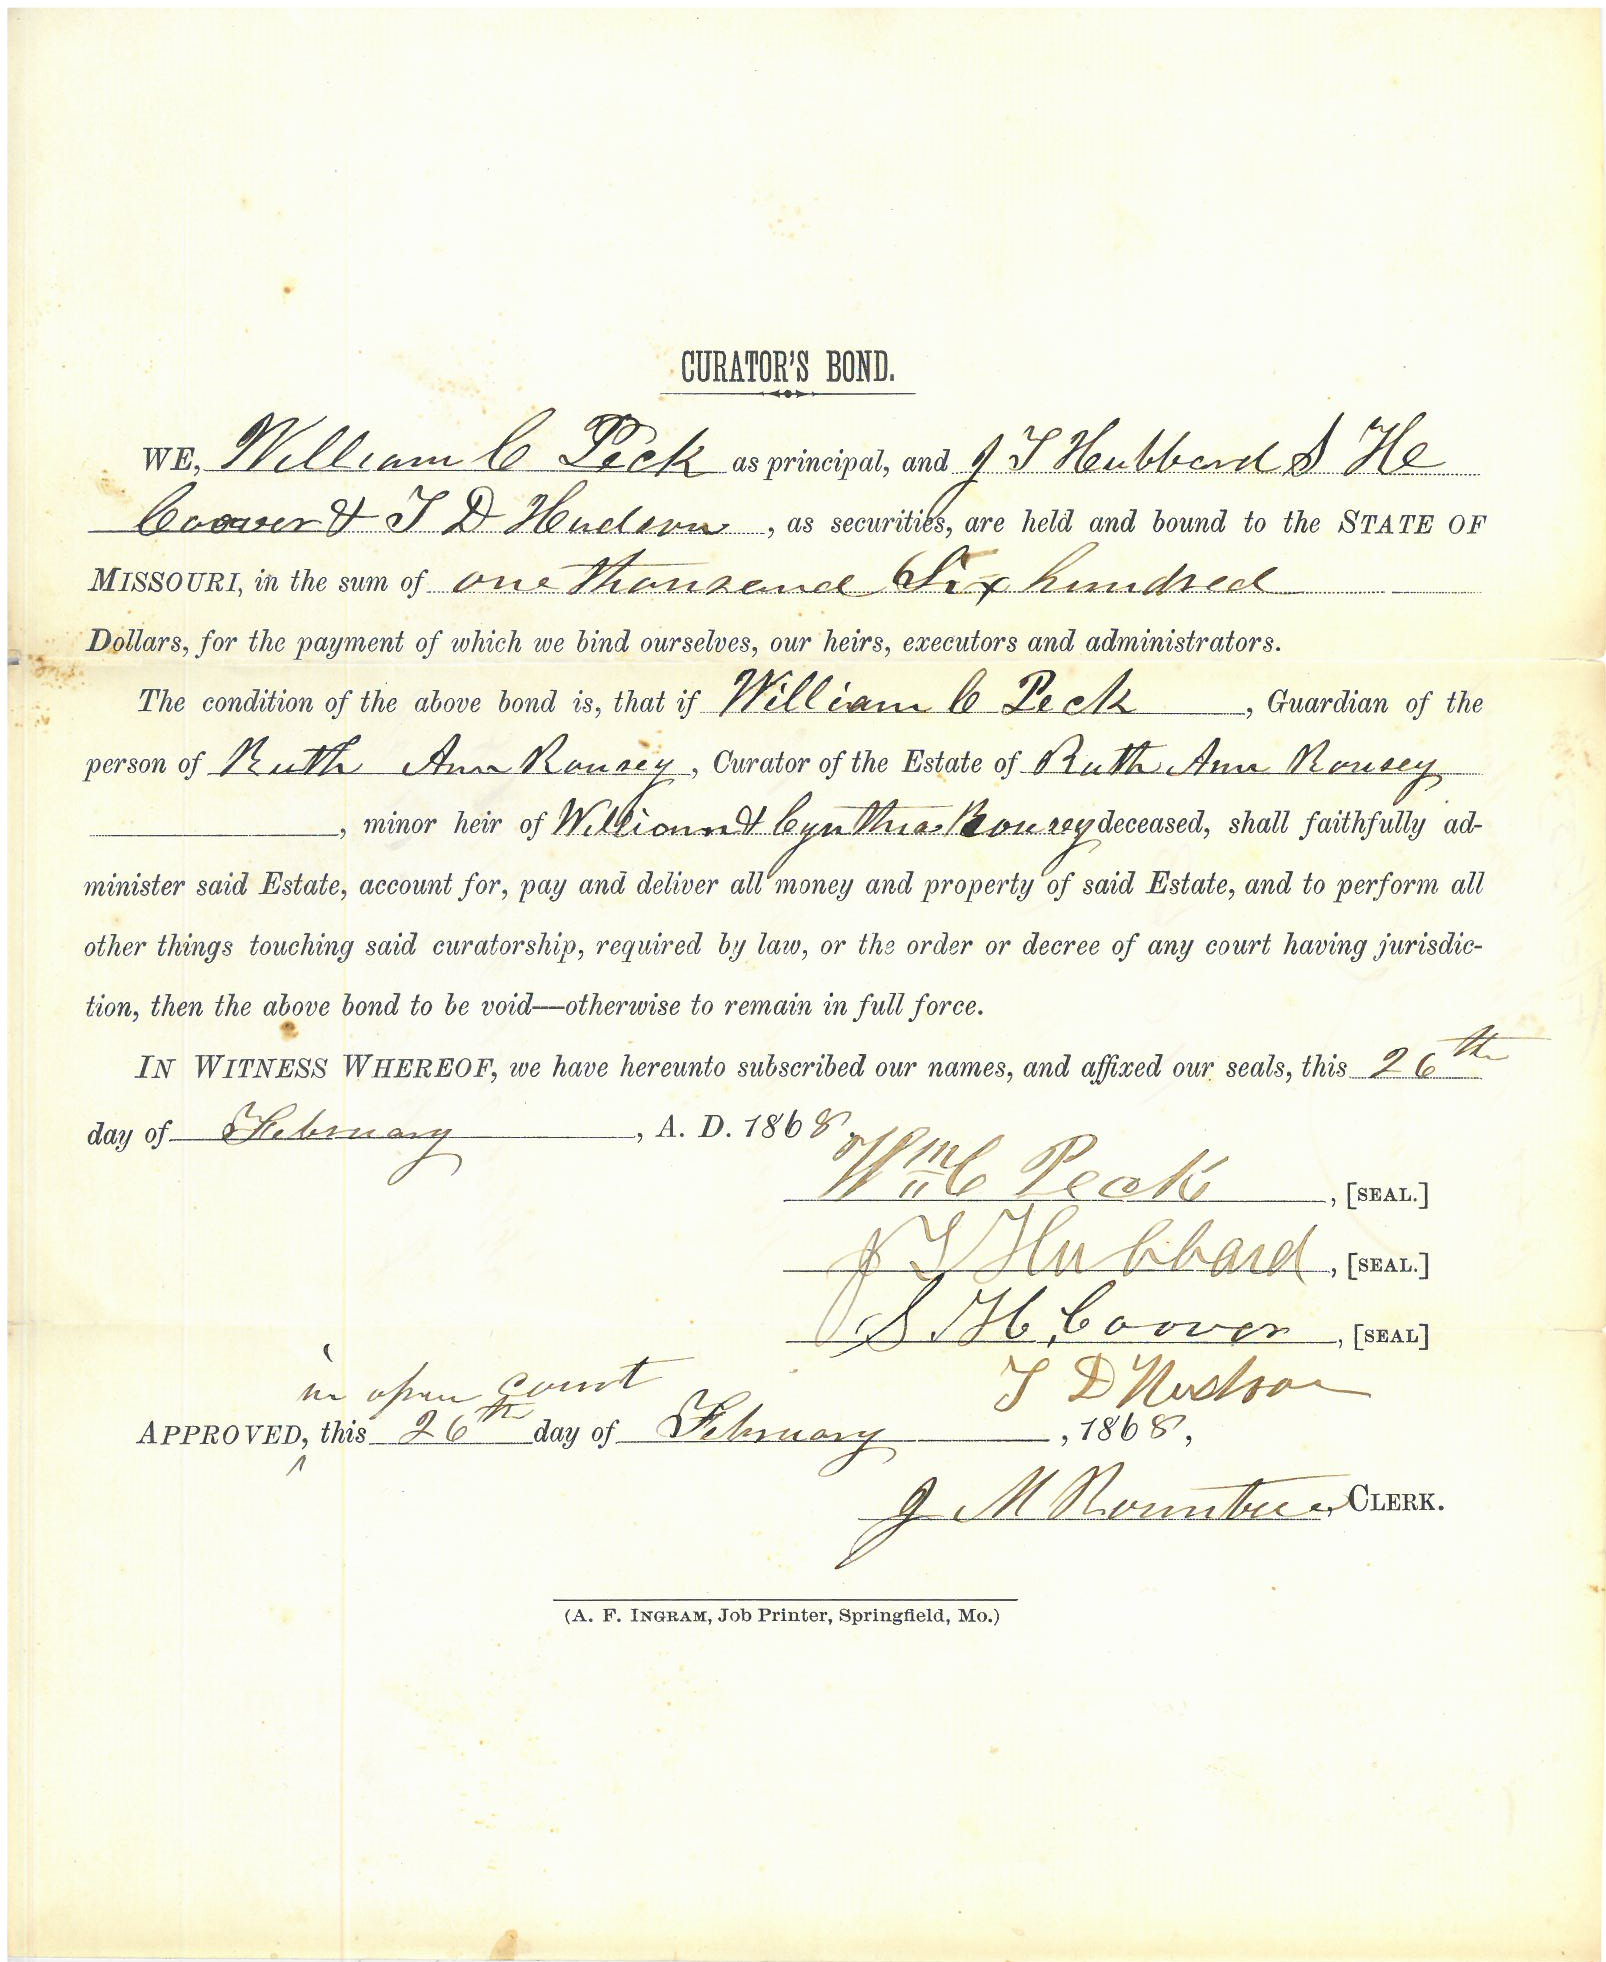 CURATOR'S BOND.
WE, William C Peck as principal, and J T Hubbard S H
Coover & T D Hudson, as securities, are held and bound to the STATE OF
MISSOURI, in the sum of one thousand Six hundred
Dollars, for the payment of which we bind ourselves, our heirs, executors and administrators.
The condition of the above bond is, that if William C Peck, Guardian of the
person of Ruth Ann Rousey, Curator of the Estate of Ruth Ann Rousey
, minor heir of William & Cynthia Rousey deceased, shall faithfully ad-
minister said Estate, account for, pay and deliver all money and property of said Estate, and to perform all
other things touching said curatorship, required by law, or the order or decree of any court having jurisdic-
tion, then the above bond to be void—otherwise to remain in full force.
IN WITNESS WHEREOF, we have hereunto subscribed our names, and affixed our seals, this 26th
day of February, A. D. 1868.
Wm C Peck, [SEAL.]
J T Hubbard, [SEAL.]
S H Coover, [SEAL]
T D Hudson
in open court
APPROVED, this 26th day of February, 1868,
J M Rountree, CLERK.
(A. F. INGRAM, Job Printer, Springfield, Mo.)